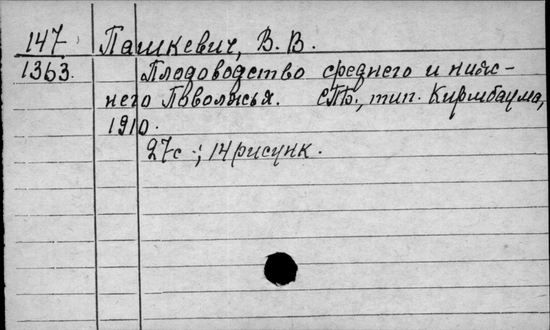 147 Пашкевич, В. В.
1363. Плодоводство среднего и ниж-
него Поволжья. СПб., тип. Киршбаума,
1910.
27с.; 14 рисунк.